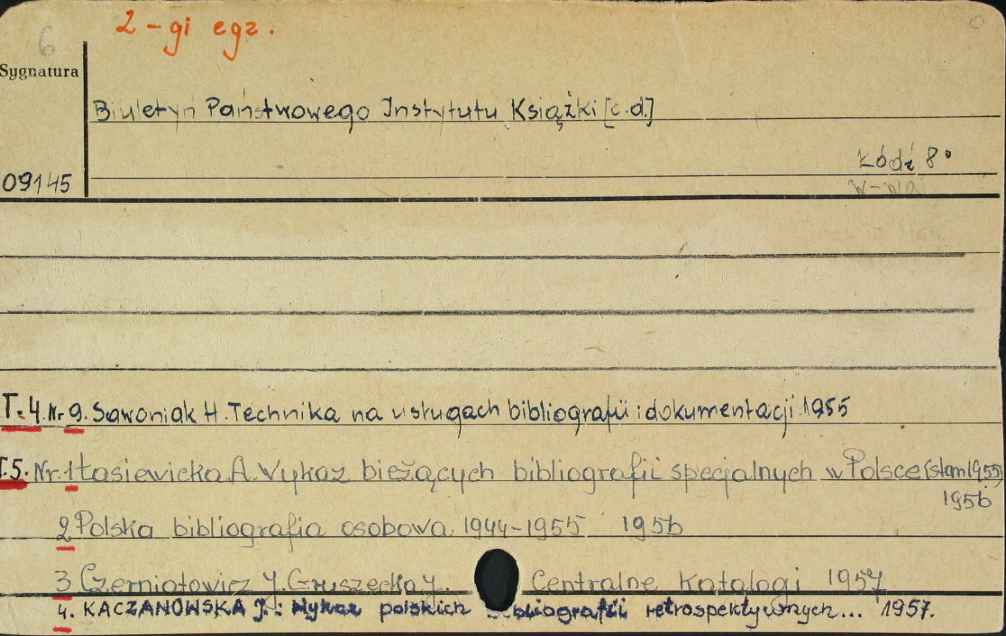 2-gi egz.
6
Sygnatura
Biuletyn Państwowego Instytutu Książki [c.d.]
Łódź 8°
09145
W-wa
T.4.Nr 9. Sawoniak H. Technika na usługach bibliografii i dokumentacji 1955
T.5. Nr.1 Łasiewicka A. Wykaz bieżących bibliografii specjalnych w Polsce (stan 1955)
1956
2 Polska bibliografia osobowa 1944-1955 1956
3 Czerniatowicz J. Gruszecka J. Centralne katalogi 1957
4. KACZANOWSKA J.: Wykaz polskich bibliografii retrospektywnych... 1957.